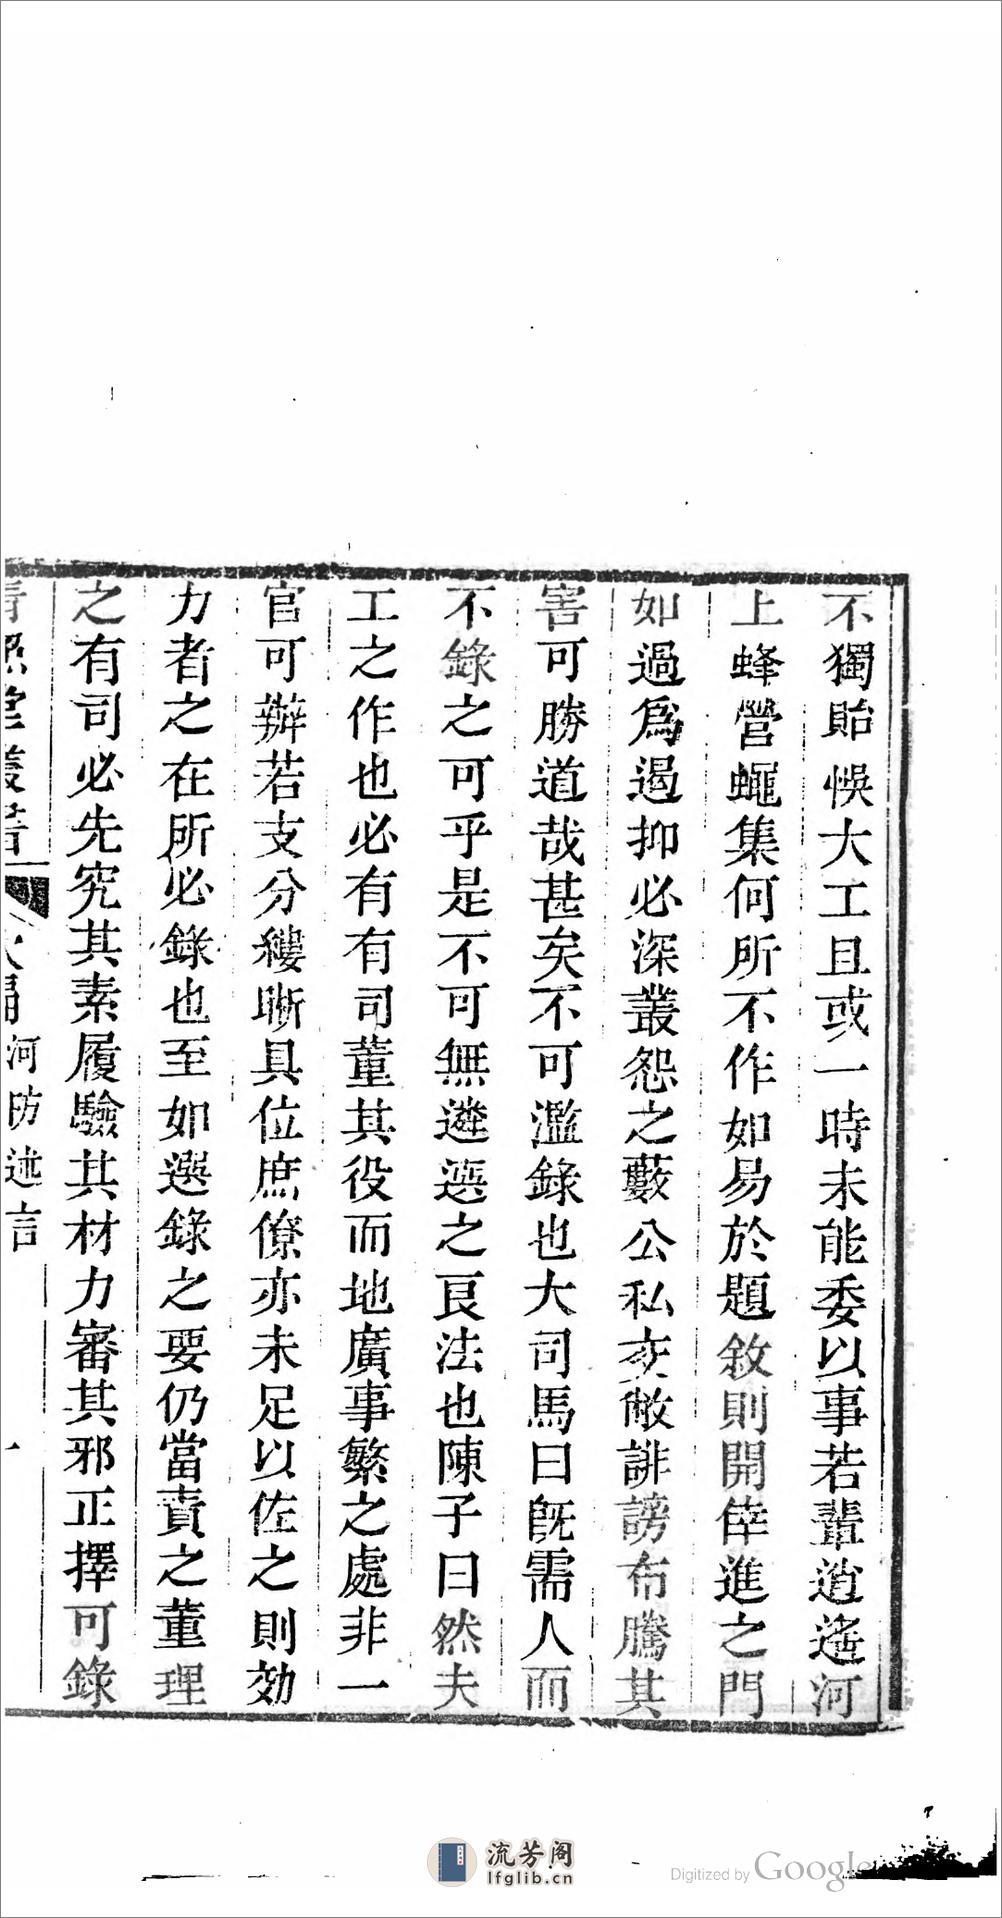 不獨貽悞大工且或一時未能委以事若輩逍遙河
上蜂營蠅集何所不作如易於題敘則開倖進之門
如過爲遏抑必深叢怨之藪公私交敝誹謗布騰其
害可勝道哉甚矣不可濫錄也大司馬曰旣需人而
不錄之可乎是不可無遴選之良法也陳子曰然夫
工之作也必有有司董其役而地廣事繁之處非一
官可辦若支分縷晰具位庶僚亦未足以佐之則効
力者之在所必錄也至如選錄之要仍當責之董理
之有司必先究其素履驗其材力審其邪正擇可錄
河防述言
流芳阁
lfglib.cn
Digitized by Google